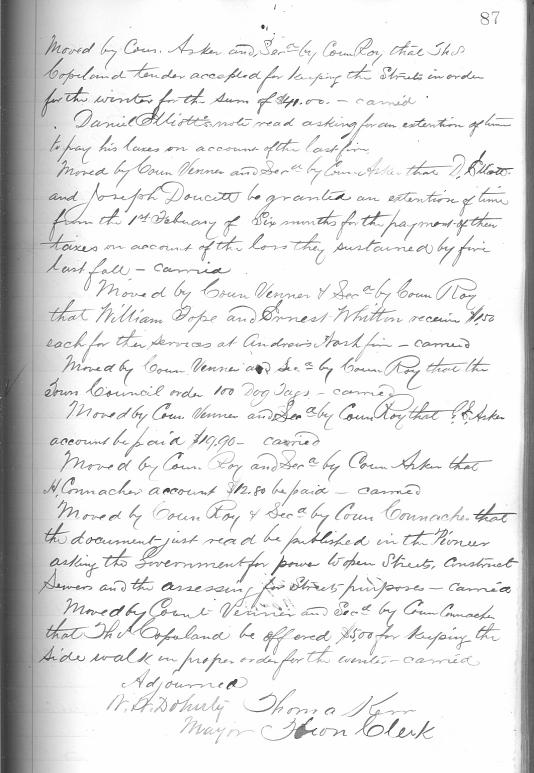 87
Moved by Coun. Asker and Secd by Coun Roy that Thos
Copeland tender accepted for keeping the Streets in order
for the winter for the sum of $40.00. – carried
Daniel Elliotts note read asking for an extention of time
to pay his taxes on account of the last fire.
Moved by Coun Venner and Secd by Coun Asker that D. Elliott
and Joseph Doucett be granted an extention of time
from the 1st February of Six months for the payment of their
taxes on account of the loss they sustained by fire
last fall – carried
Moved by Coun Venner & Secd by Coun Roy
that William Pope and Ernest Whitton receive $1.50
each for their services at Andrew fire – carried
Moved by Coun Venner and Secd by Coun Roy that the
Town Council order 100 Dog Tags – carried
Moved by Coun Venner and Secd by Coun Roy that Asker
account be paid $19.90 – carried
Moved by Coun Roy and Secd by Coun Asker that
H. Connacher account $12.80 be paid – carried
Moved by Coun Roy & Secd by Coun Connacher that
the document just read be published in the Pioneer
asking the Government for power to open Streets, Construct
Sewers and the assessing for Street purposes – carried
Moved by Count Venner and Secd by Coun Connacher
that Thos Copeland be offered $5.00 for keeping the
side walk in proper order for the winter – carried
Adjourned
W. H. Doherty Thomas Kerr
Mayor Town Clerk